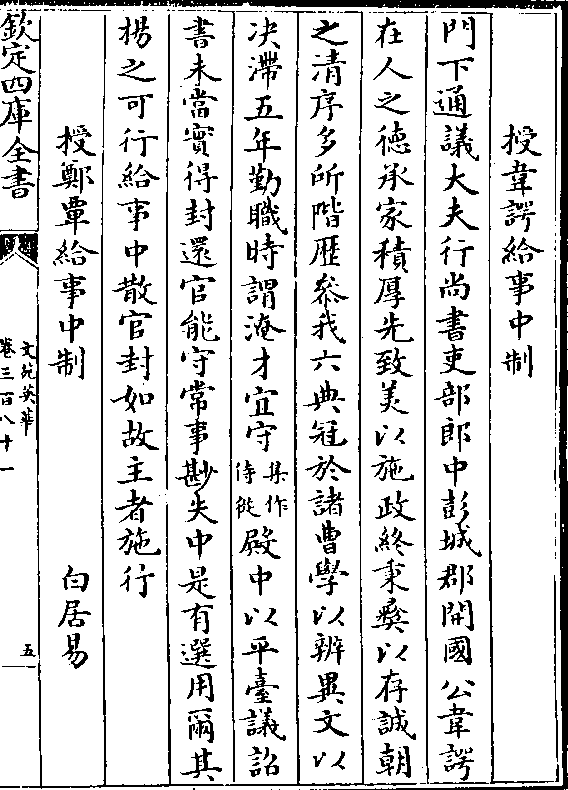 授韋諤給事中制
門下通議大夫行尚書吏部郎中彭城郡開國公韋諤
在人之德承家積厚先致美以施政終秉彝以存誠朝
之清序多所階歷叅我六典冠於諸曹學以辨異文以
决滯五年勤職時謂淹才宜守集作侍從殿中以平臺議詔
書未當實得封還官能守常事尠失中是有選用爾其
揚之可行給事中散官封如故主者施行
授鄭覃給事中制 白居易
欽定四庫全書
文苑英華
卷三百八十一
五